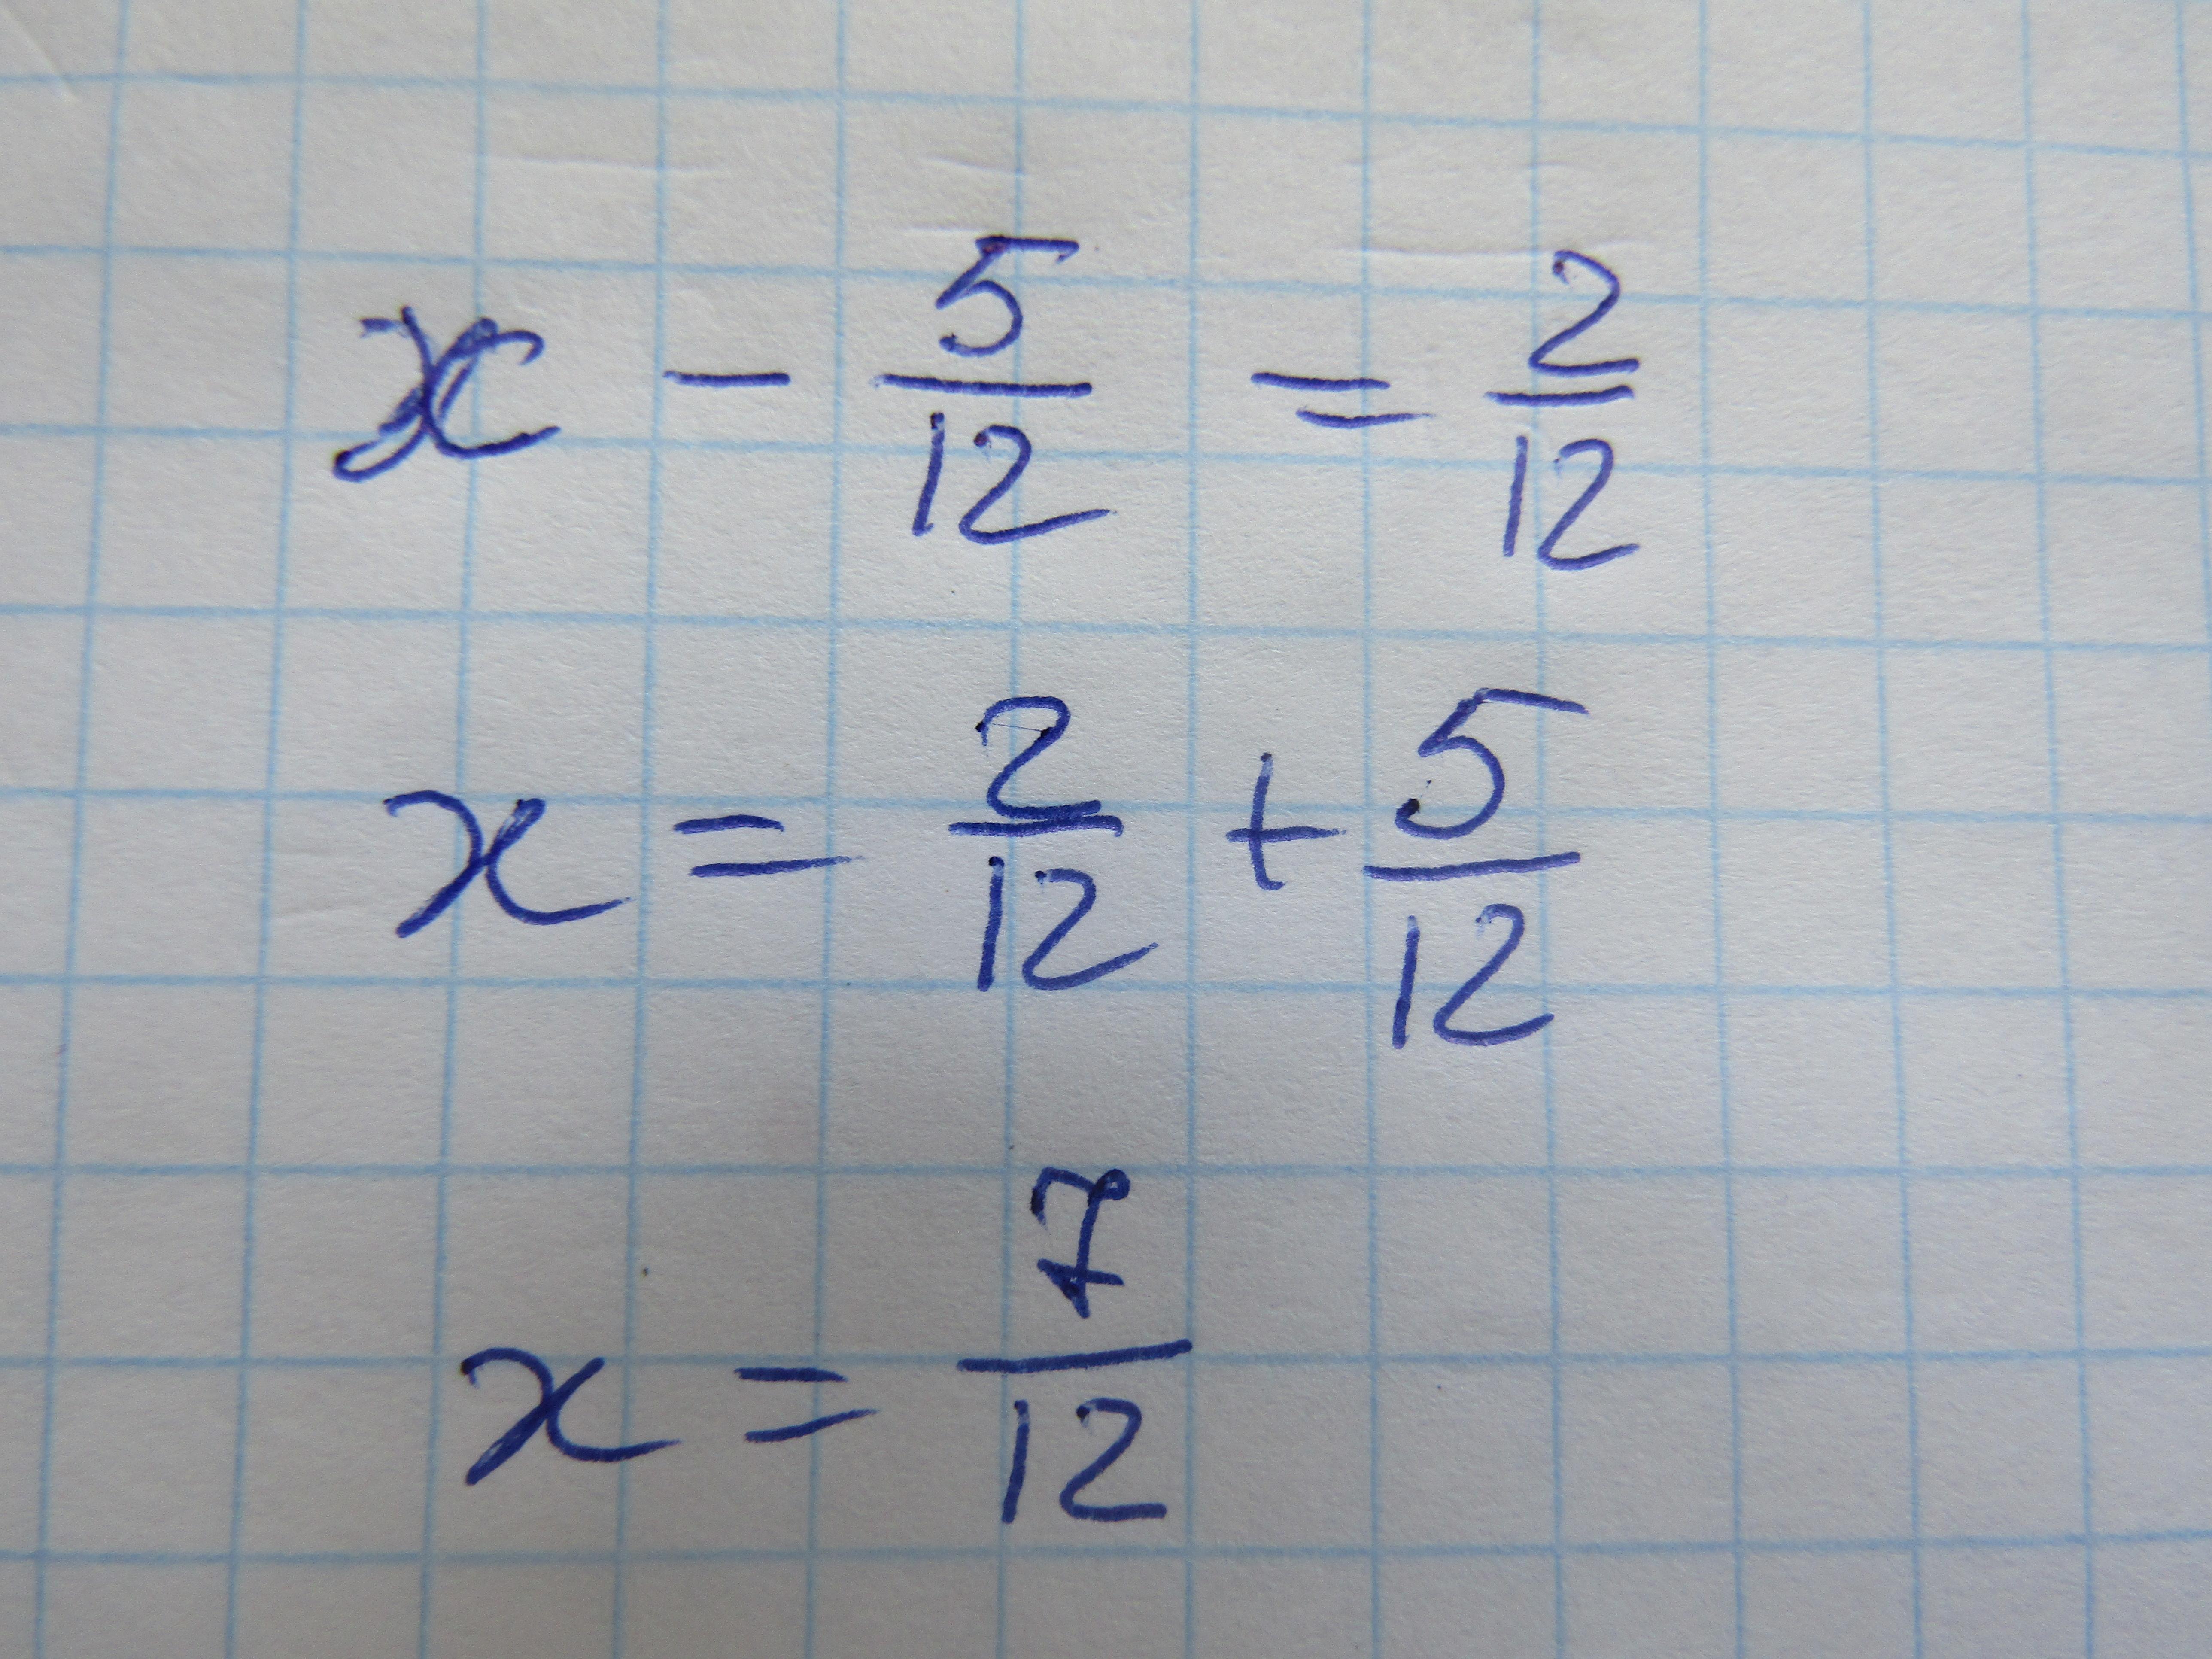 x - 5/12 = 2/12
x = 2/12 + 5/12
x = 7/12